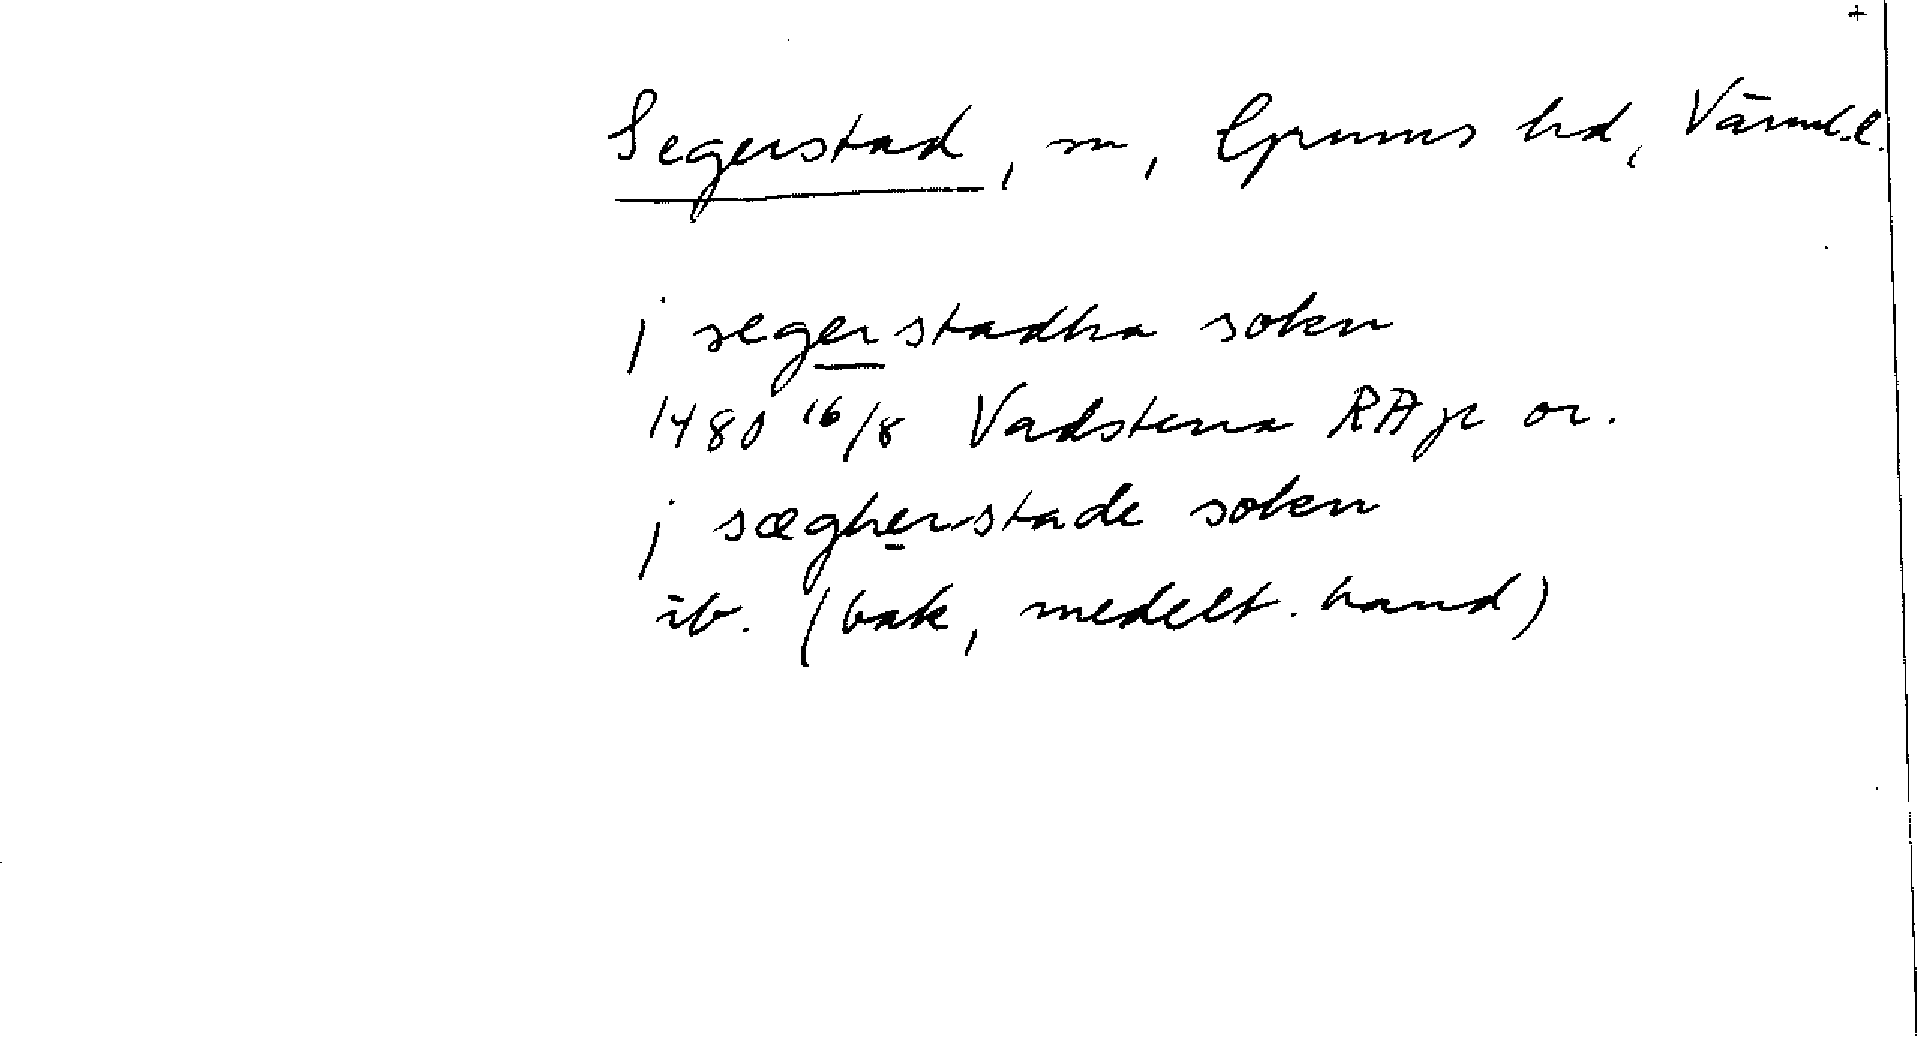 +
Segerstad, sn, Grums hd, Värml.
j segerstadha sokn
1480 16/8 Vadstena RAp or.
j sægherstade sokn
ib. (bak, medelt. hand)